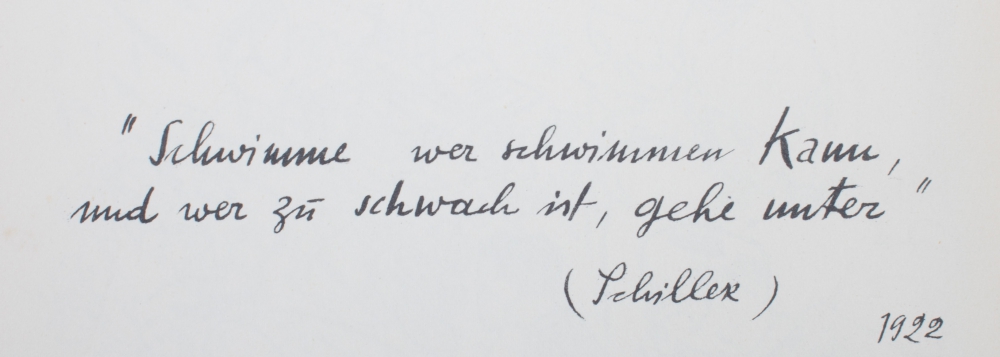 "Schwimme wer schwimmen kann,
und wer zu schwach ist, gehe unter"
(Schiller)
1922